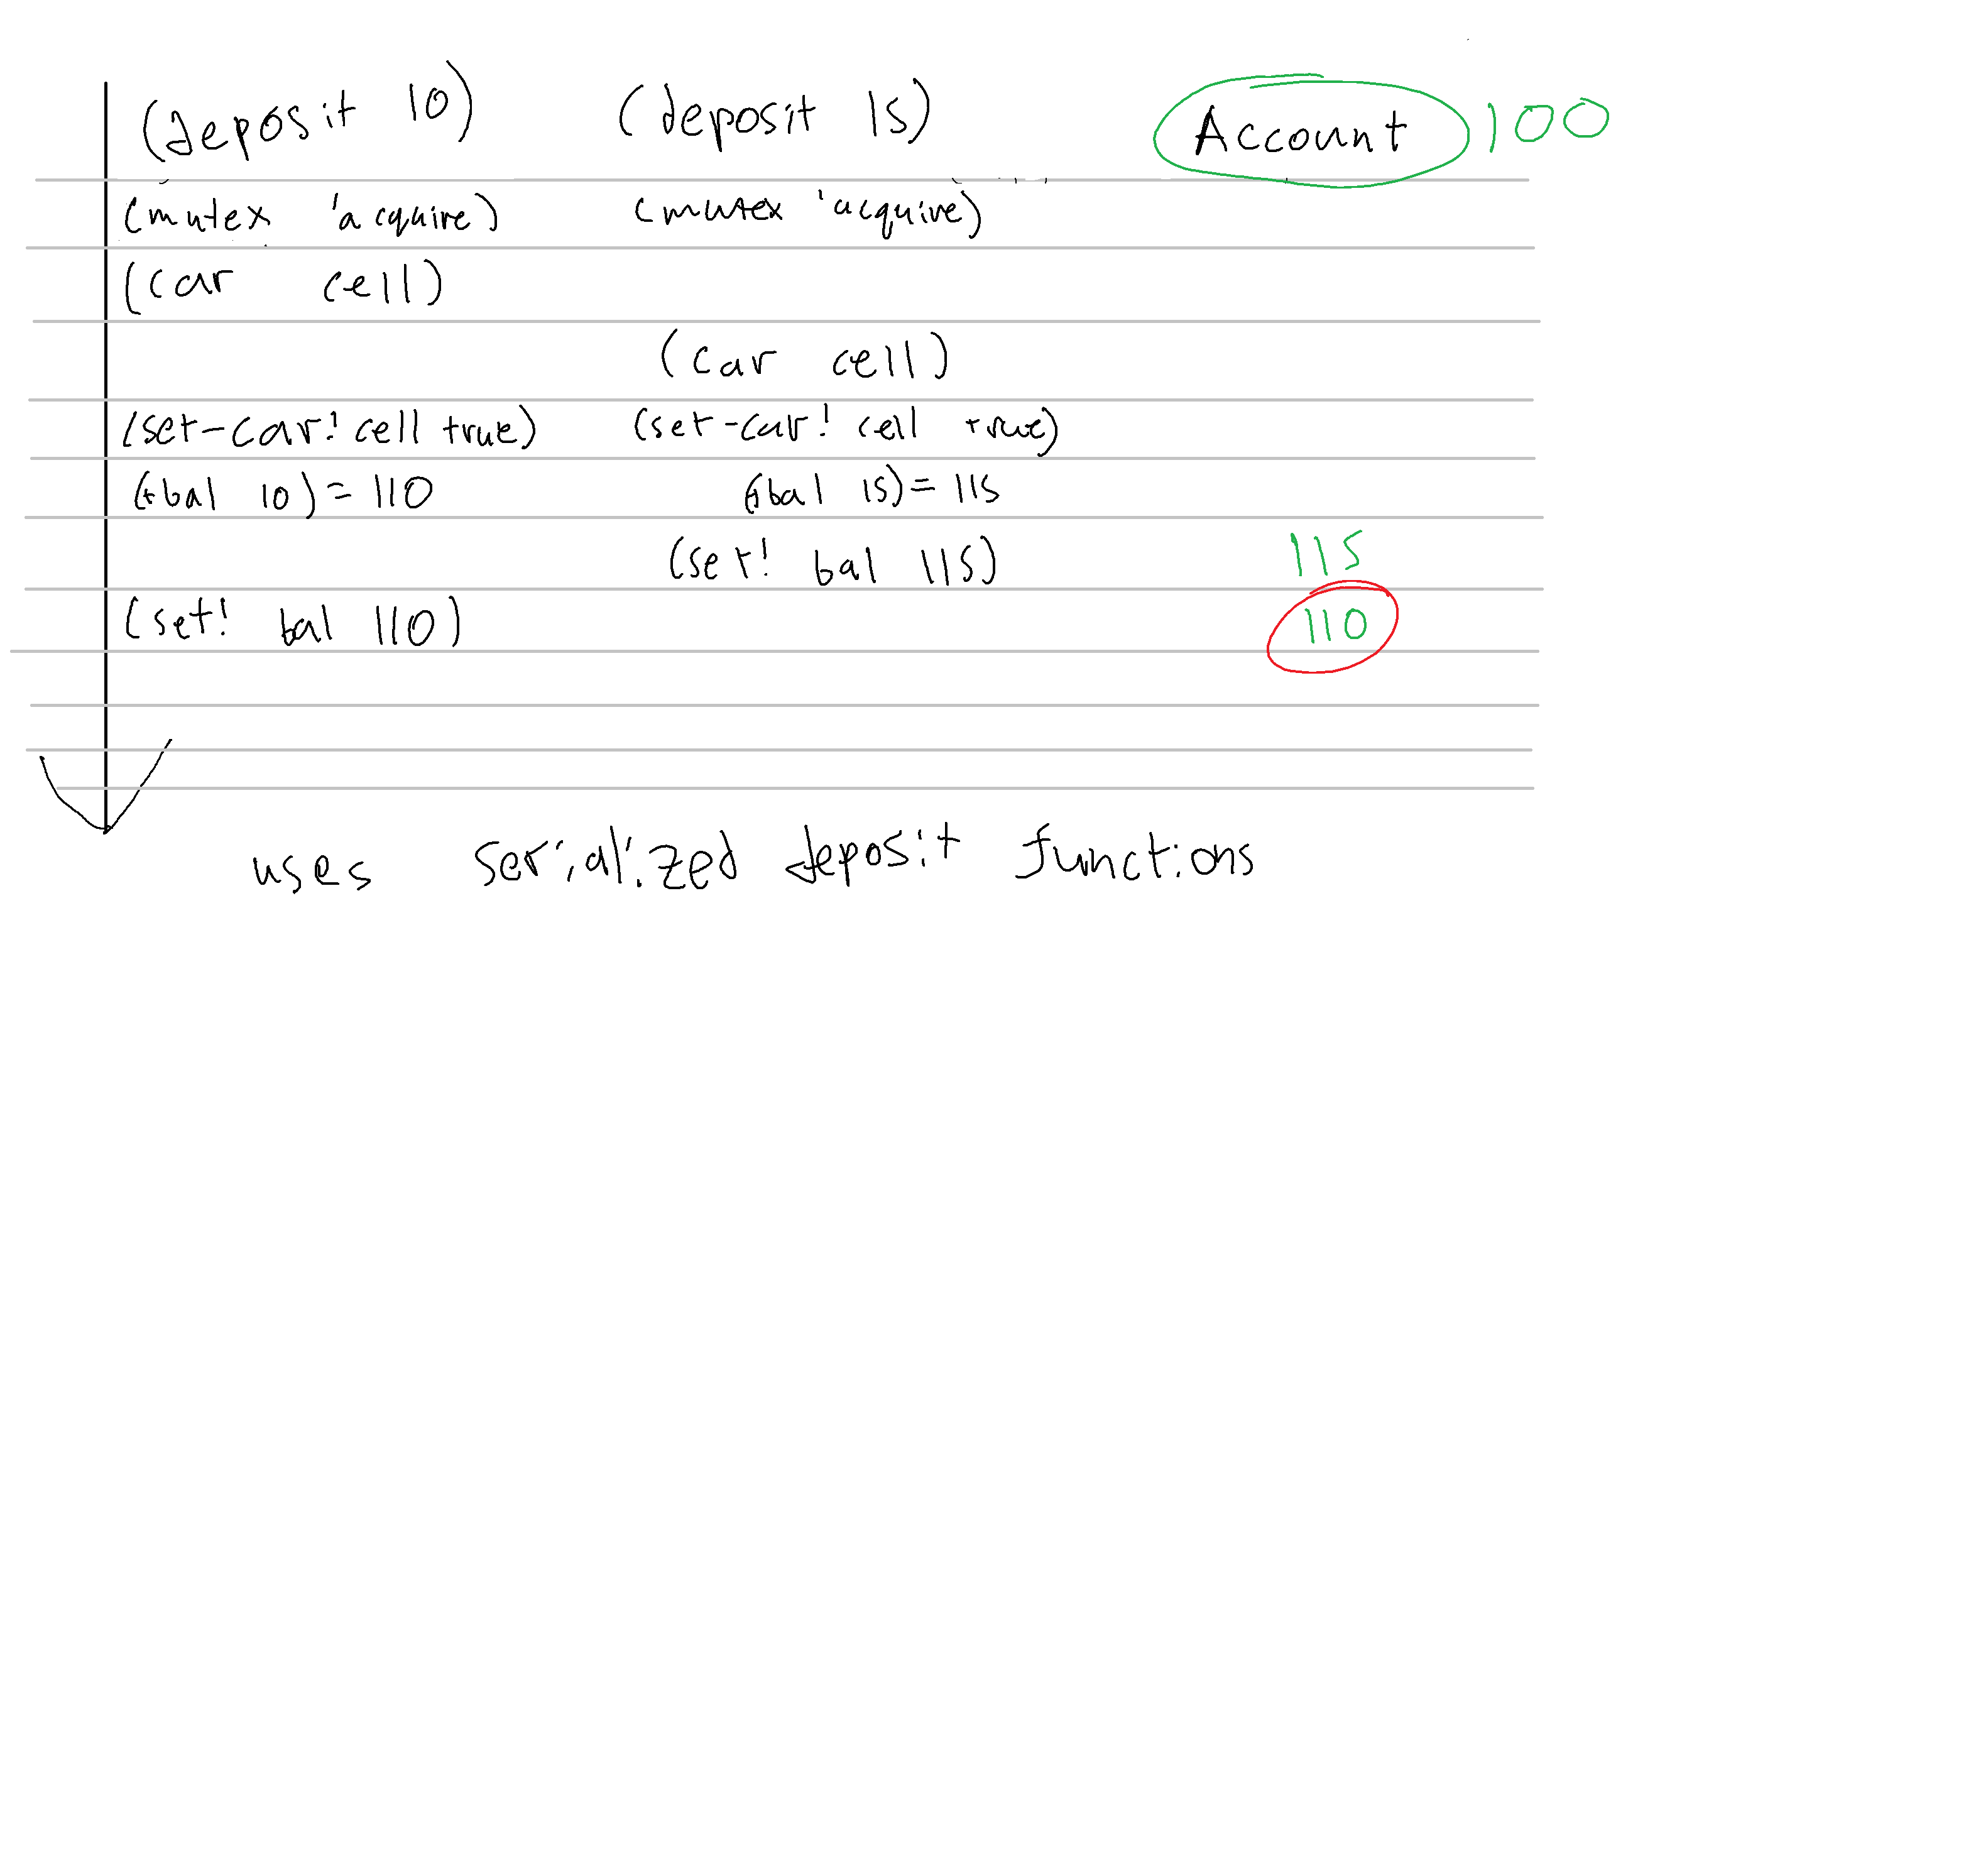 (deposit 10) (deposit 15) Account 100
(mutex 'acquire) (mutex 'acquire)
(car cell)
(car cell)
(set-car! cell true) (set-car! cell true)
(+bal 10) = 110 (+bal 15) = 115
(set! bal 115) 115
(set! bal 110) 110
uses serialized deposit functions